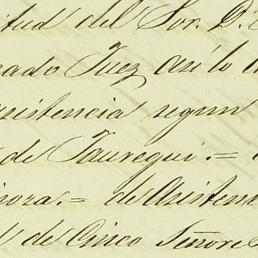 itud del Sor. D.
cado Juez así lo
xistencia segun
de Jauregui. =
nora. = de Asisten
de Cinco Señore